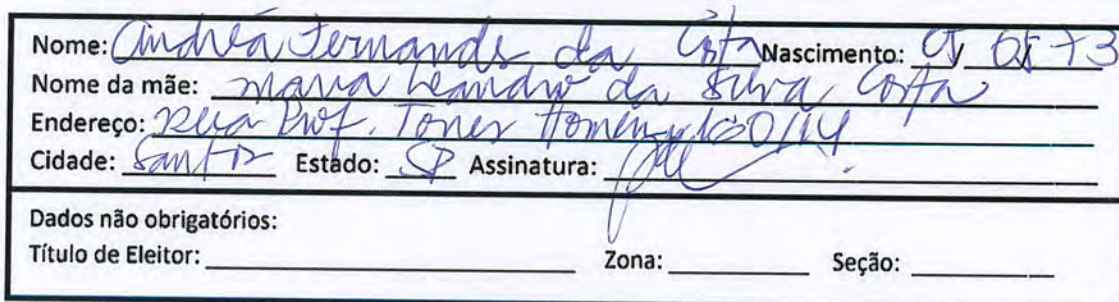 Nome: Andréa Fernandes da Costa Nascimento: 05 05 73
Nome da mãe: Maria Leandro da Silva Costa
Endereço: Rua Prof. Torres Homem,
Cidade: Santos Estado: SP Assinatura:
Dados não obrigatórios:
Título de Eleitor: Zona: Seção: